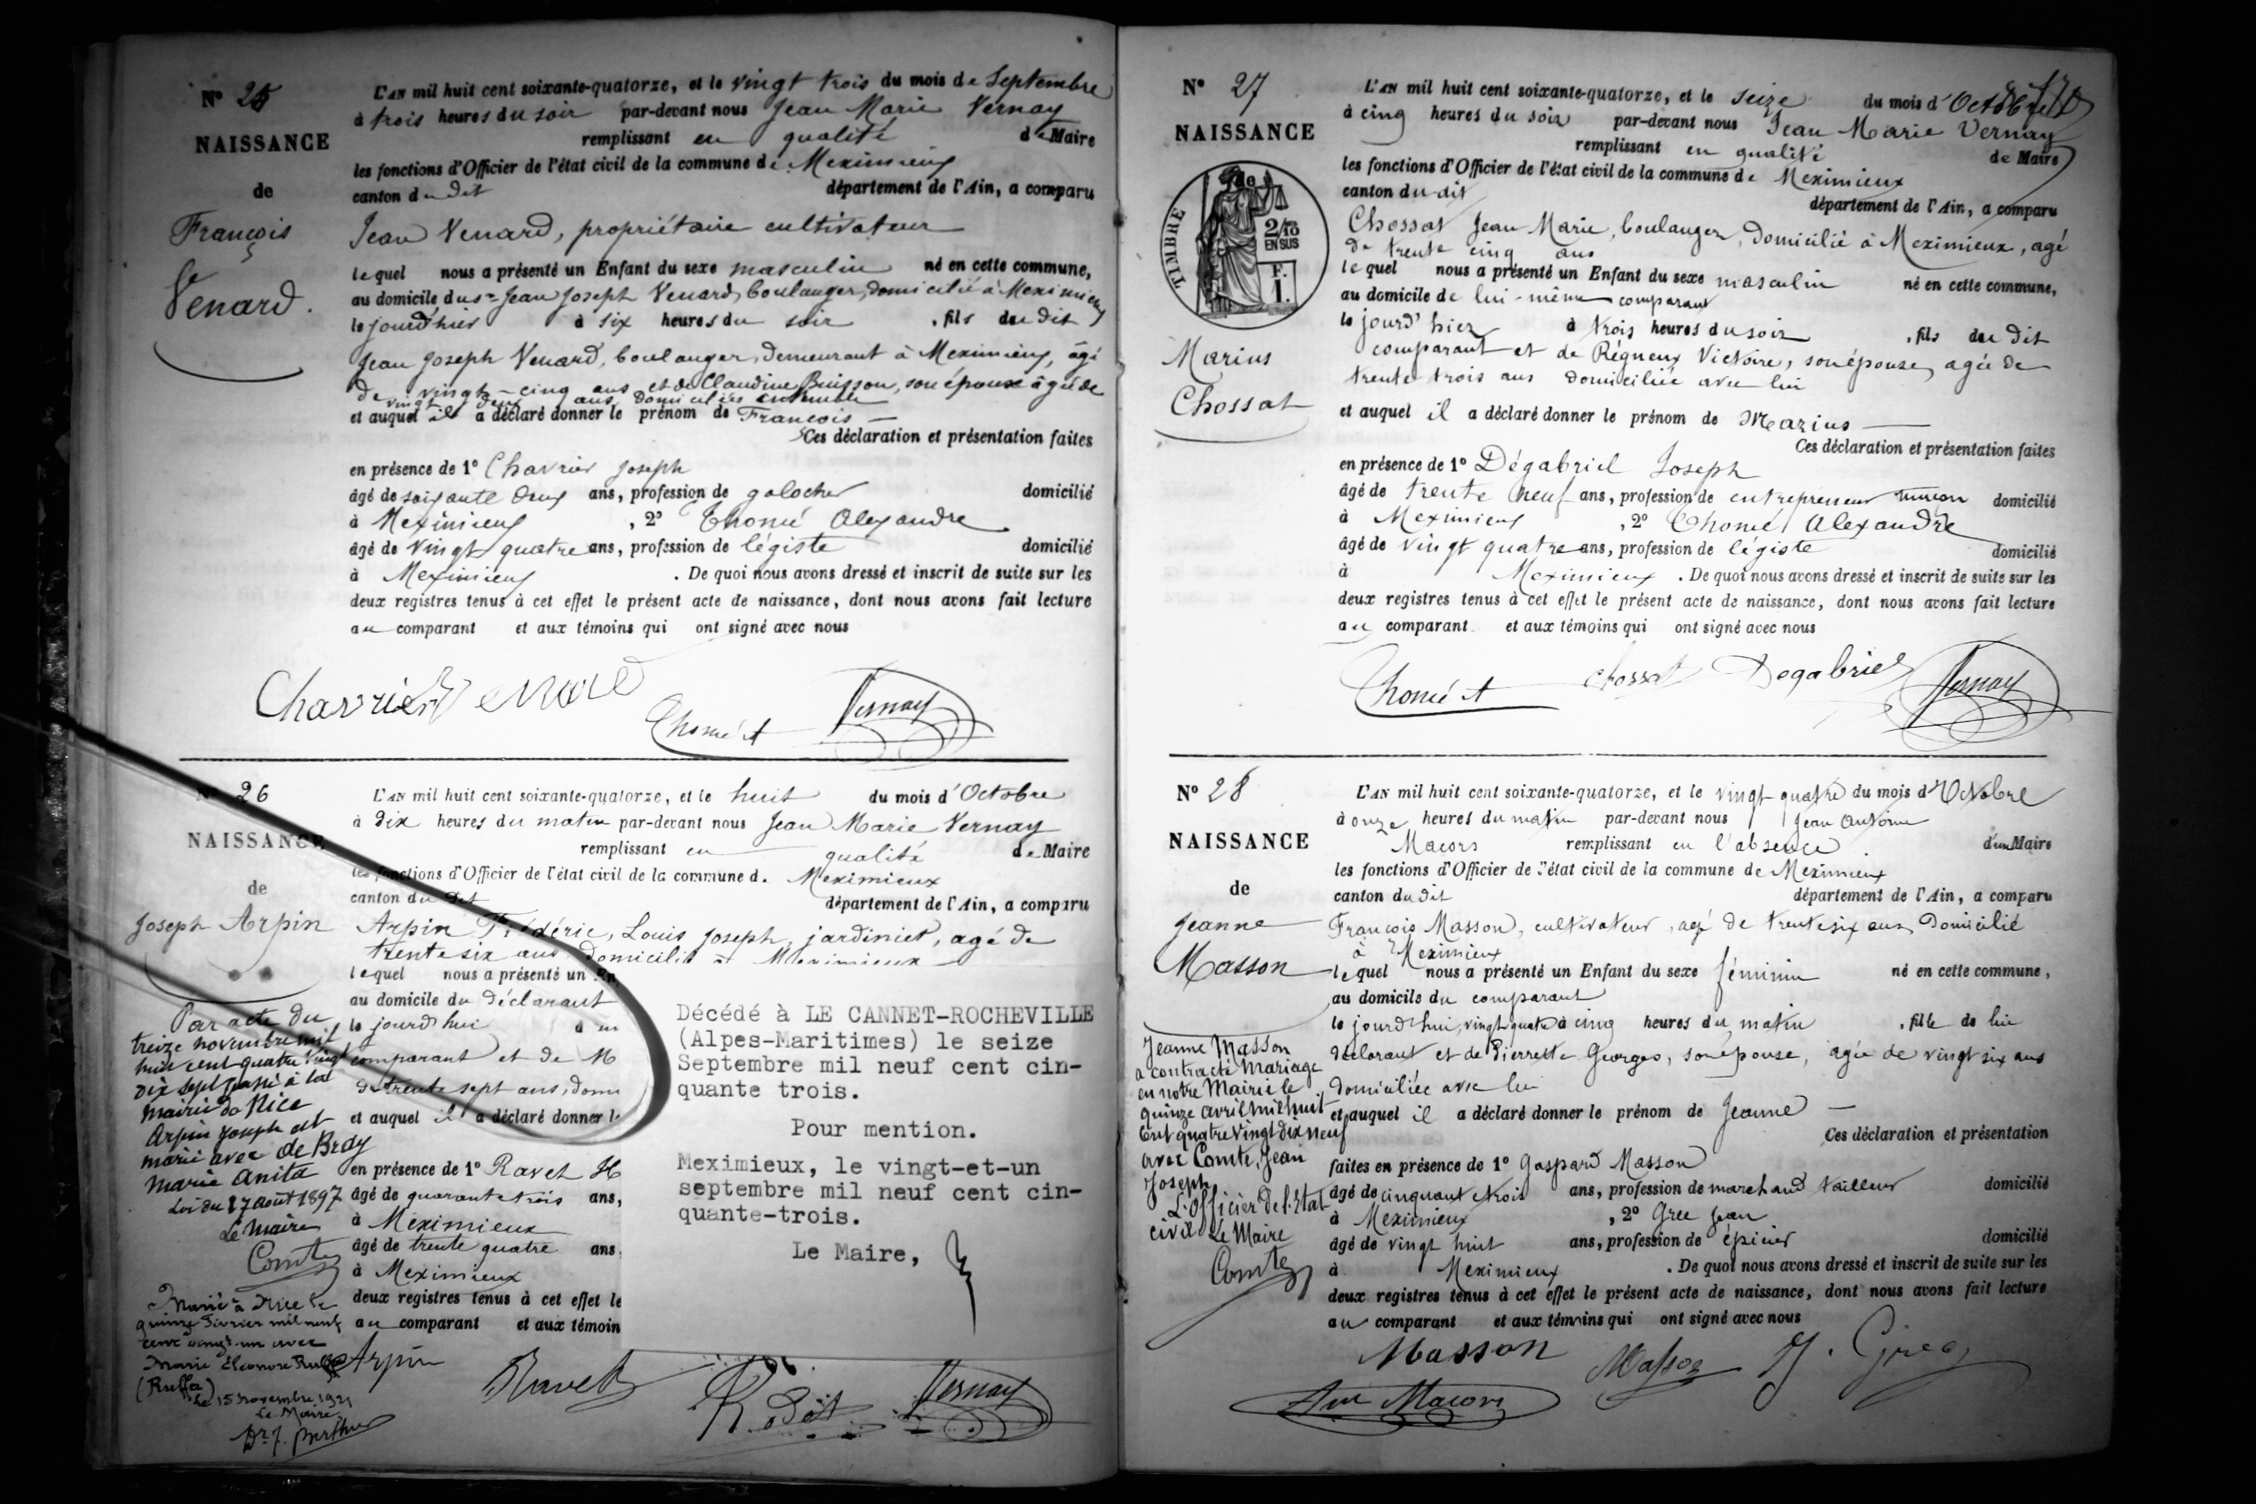 N° 25
NAISSANCE
de
François
Venard.
L'AN mil huit cent soixante-quatorze, et le vingt trois du mois de Septembre
à trois heures du soir par-devant nous Jean Marie Vernay
remplissant en qualité de Maire
les fonctions d'Officier de l'état civil de la commune de Meximieux
canton du dit département de l'Ain, a comparu
Jean Venard, propriétaire cultivateur
lequel nous a présenté un Enfant du sexe masculin né en cette commune,
au domicile du sr Jean Joseph Venard, boulanger, domicilié à Meximieux
le jourd'hier à six heures du soir, fils du dit
Jean Joseph Venard, boulanger, demeurant à Meximieux, âgé
de vingt-cinq ans et de Claudine Buisson, son épouse âgée de
vingt deux ans domiciliés ensemble
et auquel il a déclaré donner le prénom de François
Ces déclaration et présentation faites
en présence de 1° Chavrier Joseph
âgé de soixante deux ans, profession de galocher domicilié
à Meximieux, 2° Thomé Alexandre
âgé de vingt quatre ans, profession de légiste domicilié
à Meximieux. De quoi nous avons dressé et inscrit de suite sur les
deux registres tenus à cet effet le présent acte de naissance, dont nous avons fait lecture
au comparant et aux témoins qui ont signé avec nous
Chavrier Venard
Thomé A Vernay
N° 26
NAISSANCE
de
Joseph Arpin
Par acte du
treize novembre mil
huit cent quatre vingt
dix sept passé à la
mairie de Nice
Arpin Joseph est
marié avec de Bray
Marie Anita
Loi du 17 août 1897
Le Maire
Comte
Marié à Nice le
quinze février mil neuf
cent vingt-un avec
Marie Eléonore
(Ruffa)
Le 15 novembre 1921
Le Maire
Dr J. Berthier
L'AN mil huit cent soixante-quatorze, et le huit du mois d'Octobre
à dix heures du matin par-devant nous Jean Marie Vernay
remplissant en qualité de Maire
les fonctions d'Officier de l'état civil de la commune d. Meximieux
canton du dit département de l'Ain, a comparu
Arpin Frédéric, Louis Joseph, jardinier, agé de
trente six ans domicilié à Meximieux
lequel nous a présenté un En
au domicile du déclarant
le jourd'hui à un
comparant et de M
de trente sept ans, domi
et auquel il a déclaré donner l
en présence de 1° Ravet H
âgé de quarante trois ans,
à Meximieux
âgé de trente quatre ans,
à Meximieux
deux registres tenus à cet effet le
au comparant et aux témoin
Décédé à LE CANNET-ROCHEVILLE
(Alpes-Maritimes) le seize
Septembre mil neuf cent cin-
quante trois.
Pour mention.
Meximieux, le vingt-et-un
septembre mil neuf cent cin-
quante-trois.
Le Maire,
Arpin Ravet Rodet Vernay
N° 27
NAISSANCE
de
TIMBRE
2/10
EN SUS
F.
1.
Marius
Chossat
L'AN mil huit cent soixante-quatorze, et le seize du mois d'Octobre
à cinq heures du soir par-devant nous Jean Marie Vernay
remplissant en qualité de Maire
les fonctions d'Officier de l'état civil de la commune de Meximieux
canton du dit département de l'Ain, a comparu
Chossat Jean Marie, boulanger, domicilié à Meximieux, agé
de trente cinq ans
lequel nous a présenté un Enfant du sexe masculin né en cette commune,
au domicile de lui-même comparant
le jourd'hier à trois heures du soir, fils du dit
comparant et de Régneux Victoire, son épouse, agée de
trente trois ans domiciliée avec lui
et auquel il a déclaré donner le prénom de Marius
Ces déclaration et présentation faites
en présence de 1° Dégabriel Joseph
âgé de trente neuf ans, profession de entrepreneur domicilié
à Meximieux, 2° Thomé Alexandre
âgé de vingt quatre ans, profession de légiste domicilié
à Meximieux. De quoi nous avons dressé et inscrit de suite sur les
deux registres tenus à cet effet le présent acte de naissance, dont nous avons fait lecture
au comparant et aux témoins qui ont signé avec nous
Thomé A Chossat Degabriel Vernay
N° 28
NAISSANCE
de
Jeanne
Masson
Jeanne Masson
a contracté Mariage
en notre Mairie le
quinze avril mil huit
cent quatre vingt dix neuf
avec Comte, Jean
Joseph
L'Officier de l'Etat
civil Le Maire
Comte
L'AN mil huit cent soixante-quatorze, et le vingt quatre du mois d'Octobre
à onze heures du matin par-devant nous Jean Antoine
Macors remplissant en l'absence du Maire
les fonctions d'Officier de l'état civil de la commune de Meximieux
canton du dit département de l'Ain, a comparu
François Masson, cultivateur, agé de trente six ans, Domicilié
à Meximieux
lequel nous a présenté un Enfant du sexe féminin né en cette commune,
au domicile du comparant
le jourd'hui, vingt quatre à cinq heures du matin, fille de lui
déclarant et de Pierrette Georges, son épouse, agée de vingt six ans
domiciliée avec lui
et auquel il a déclaré donner le prénom de Jeanne
Ces déclaration et présentation
faites en présence de 1° Gaspard Masson
âgé de cinquante trois ans, profession de marchand tailleur domicilié
à Meximieux, 2° Gree Jean
âgé de vingt huit ans, profession de épicier domicilié
à Meximieux. De quoi nous avons dressé et inscrit de suite sur les
deux registres tenus à cet effet le présent acte de naissance, dont nous avons fait lecture
au comparant et aux témoins qui ont signé avec nous
Masson Masson J. Greg
Ant Macors